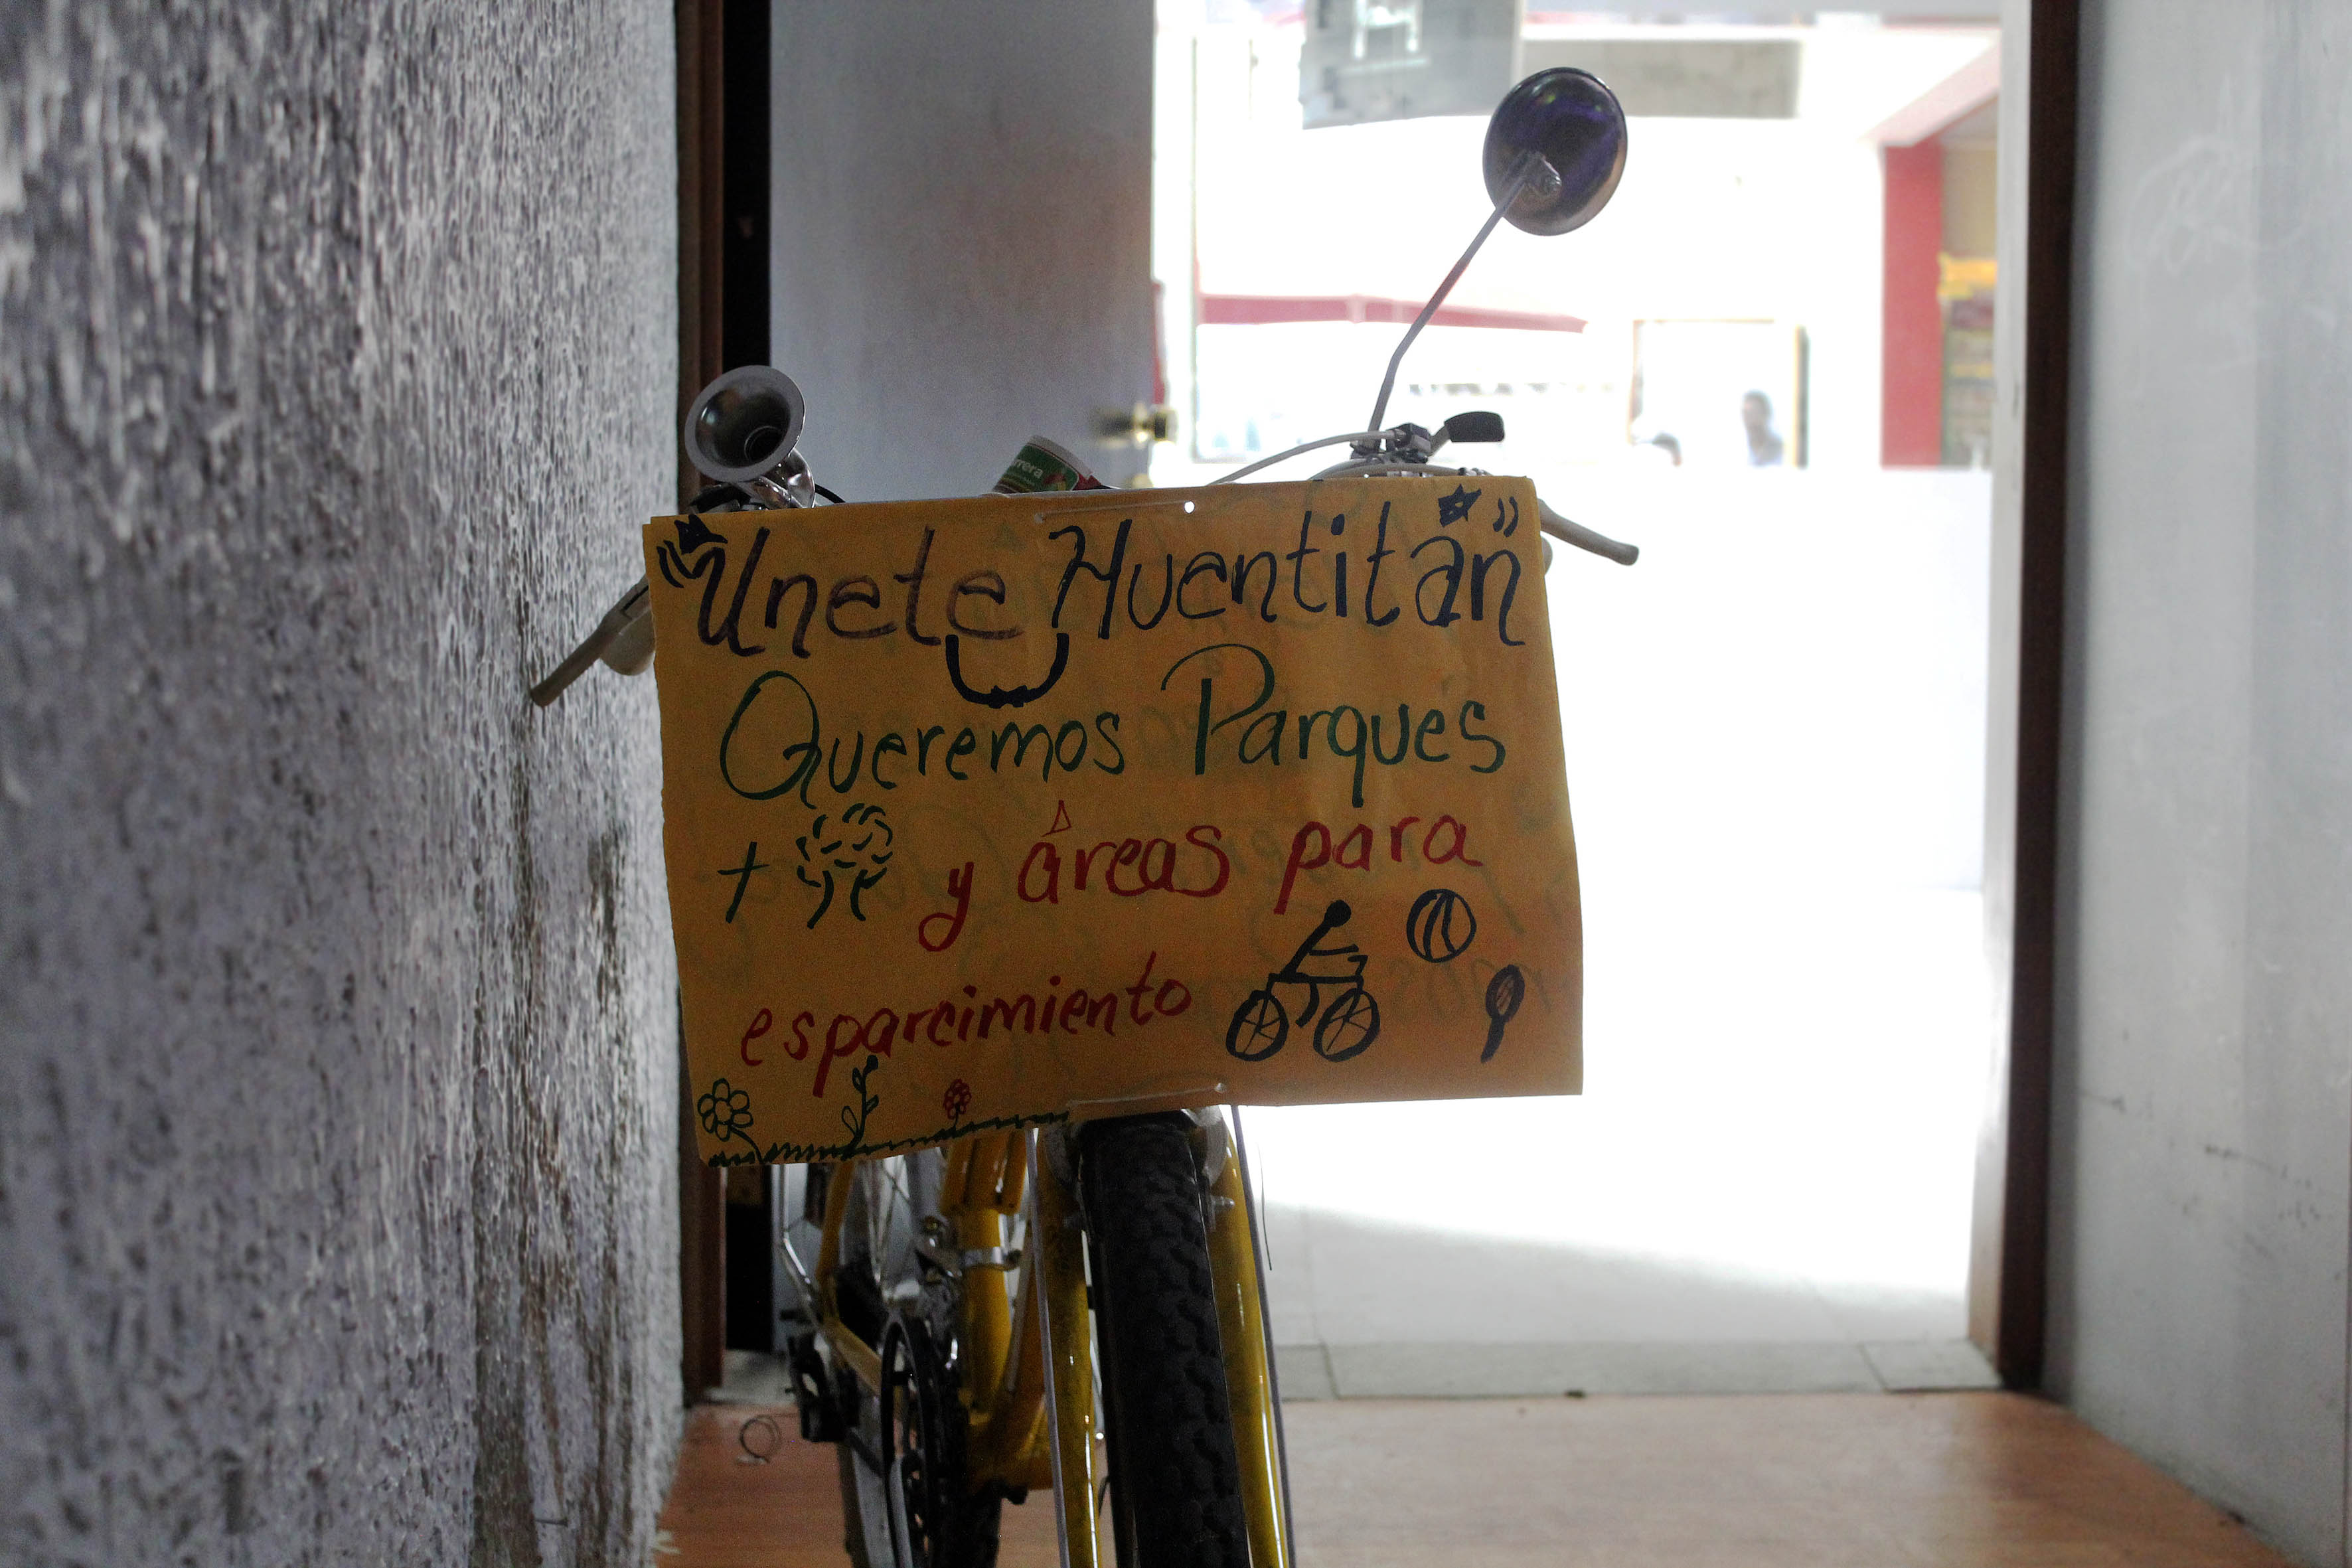 "Únete Huentitán"
Queremos Parques
+ y áreas para
esparcimiento